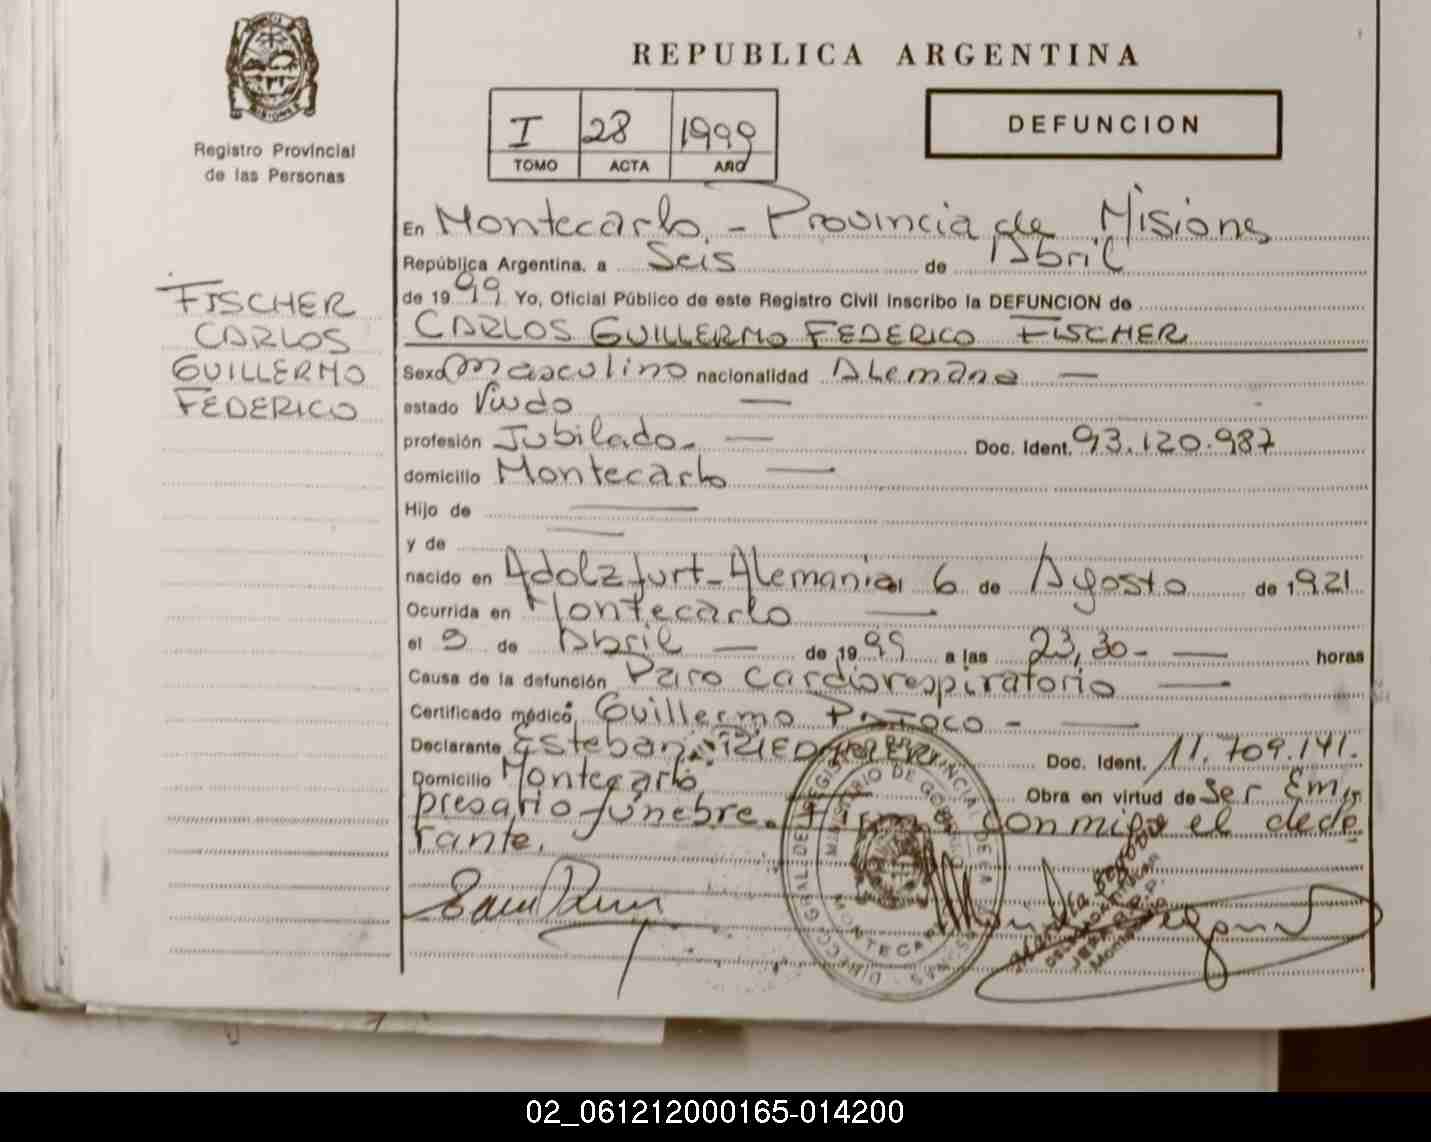 REPUBLICA ARGENTINA
MISIONES
Registro Provincial
de las Personas
I 28 1999
TOMO ACTA AÑO
DEFUNCION
FISCHER
CARLOS
GUILLERMO
FEDERICO
En Montecarlo - Provincia de Misiones
República Argentina, a Seis de Abril
de 1999 Yo, Oficial Público de este Registro Civil inscribo la DEFUNCION de
CARLOS GUILLERMO FEDERICO FISCHER
Sexo Masculino nacionalidad Alemana —
estado Viudo —
profesión Jubilado. — Doc. Ident. 93.120.987
domicilio Montecarlo —
Hijo de —
y de —
nacido en Adolzfurt - Alemania el 6 de Agosto de 1921
Ocurrida en Montecarlo —
el de Abril — de 1999 a las 23,30 - — horas
Causa de la defunción Paro cardiorespiratorio —
Certificado médico Guillermo -
Declarante Esteban Doc. Ident. 11.709.141.
Domicilio Montecarlo Obra en virtud de Ser Em
presario fúnebre. Firma conmigo el decla
rante.
MINISTERIO DE GOBIERNO
MONTECARLO